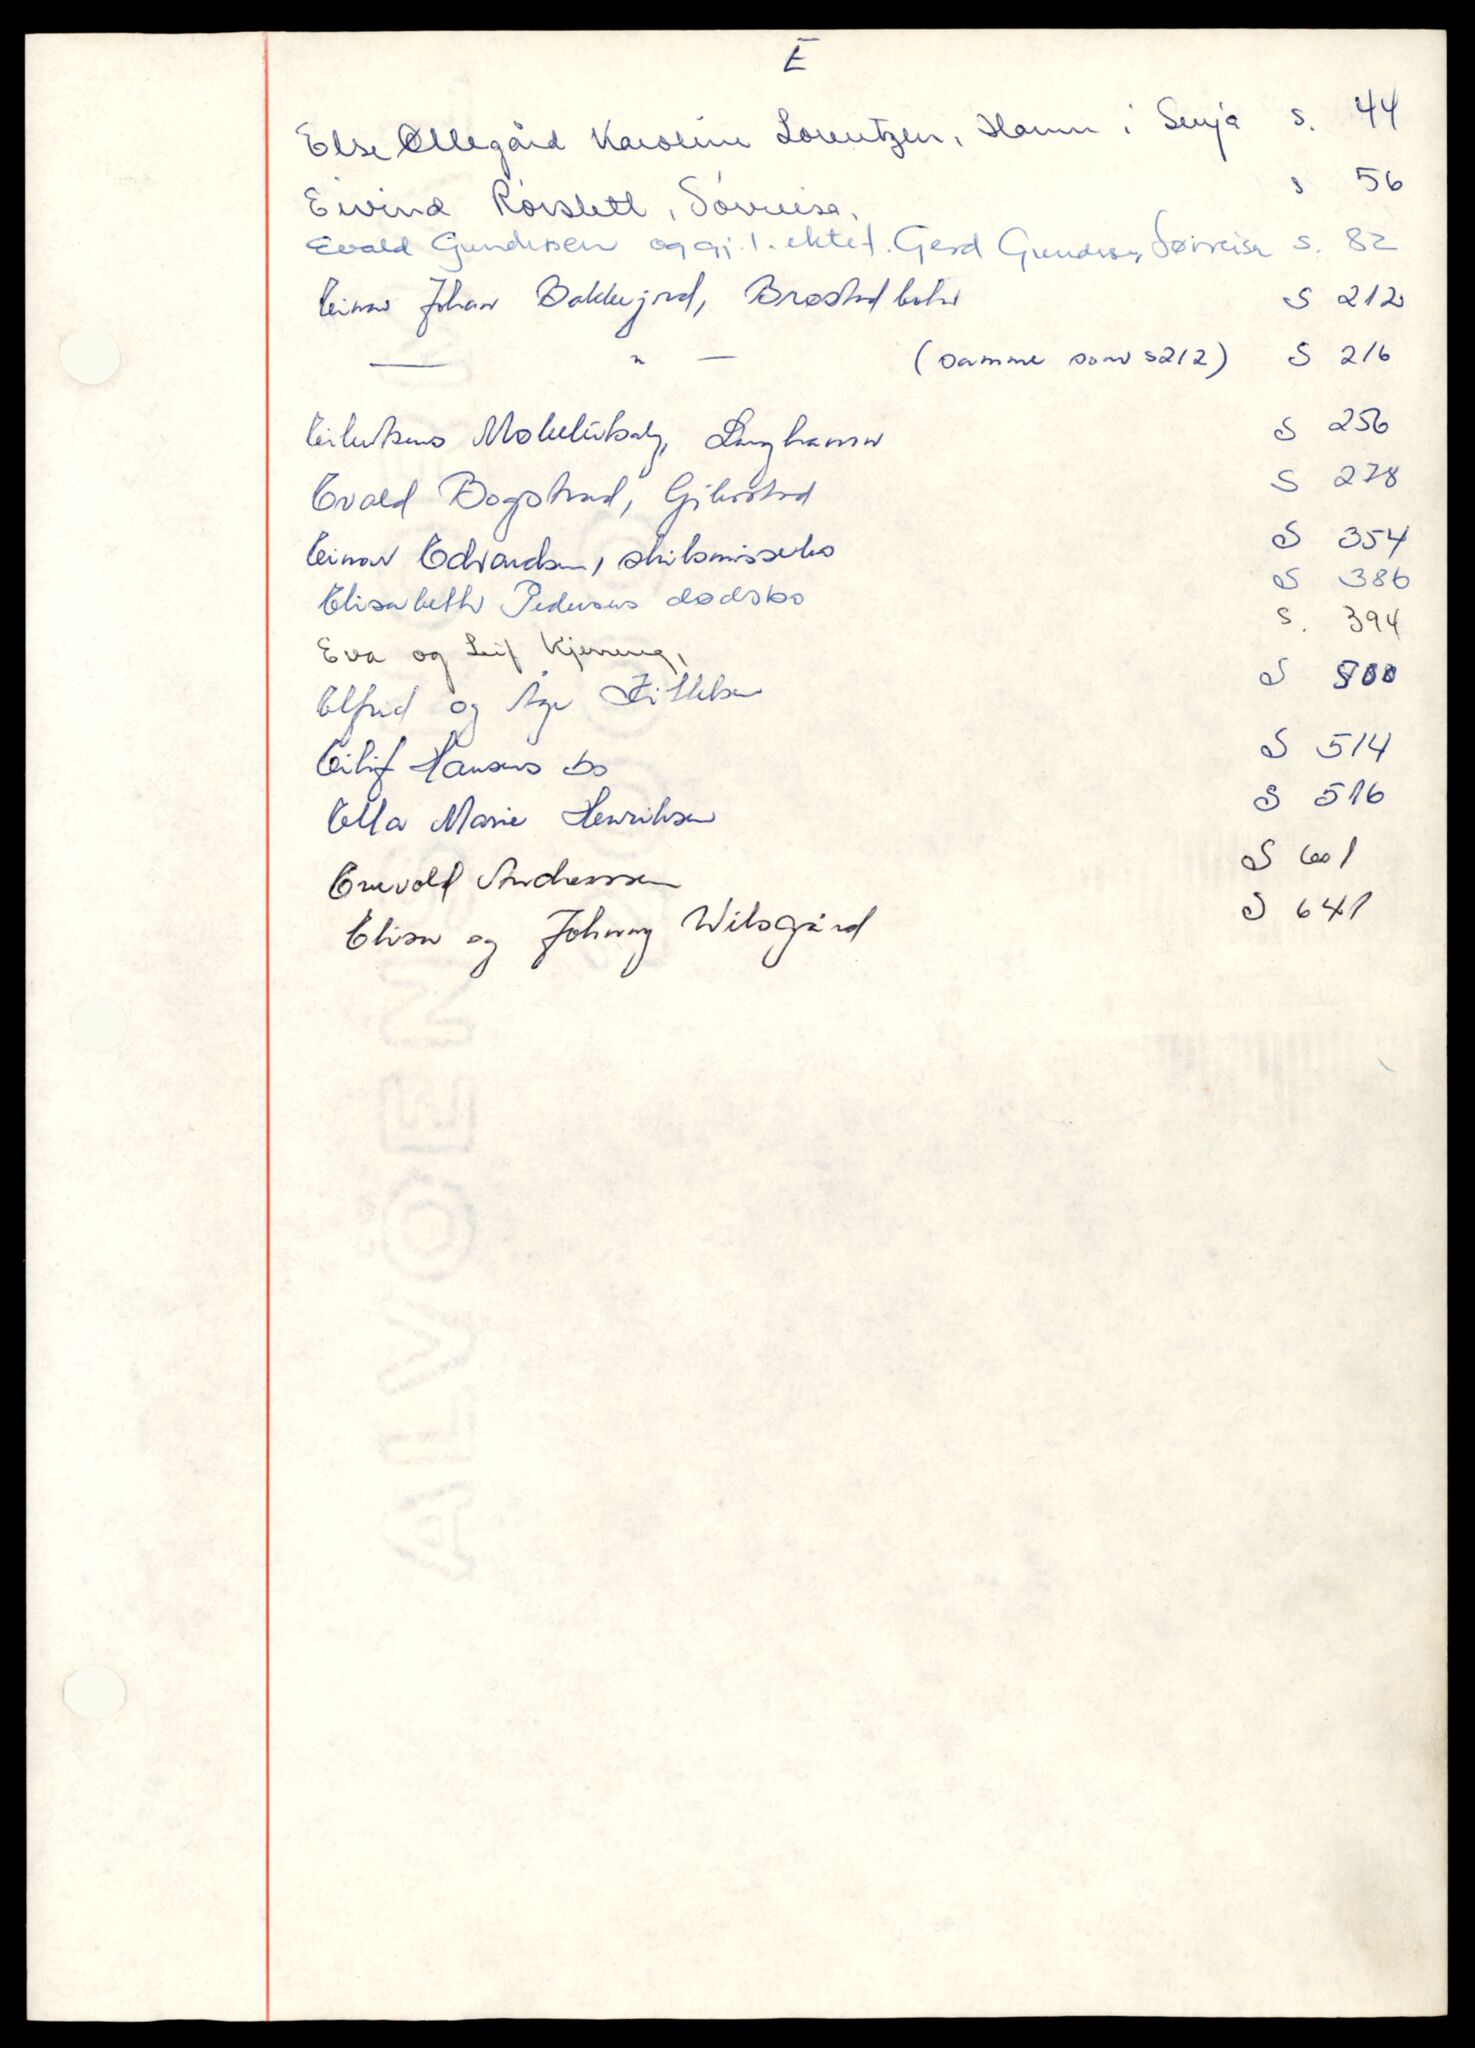 E
Else Ollegård Karoline Lorentzen, Hamn i Senja s. 44
Eivind Rørslett, Sørreisa. s 56
Evald Gundersen og gj.l. ektef. Gerd Gundersen, Sørreisa s. 82
Einar Johan Bakkejord, Brøstadbotn S 212
— " — (samme som s212) S 216
S 256
Evald Bogstrand, Gibostad S 278
Einar Edvardsen, skilsmissebo S 354
Elisabeth Pedersens dødsbo S 386
Eva og Leif Kjerreng, s. 394
Elfrid og Åge Kittelsen S 500
Eilif Hansens bo S 514
Ella Marie Henriksen S 516
Enevold Andreassen S 601
Elisa og Johnny Wilsgård S 641
ALVØEN